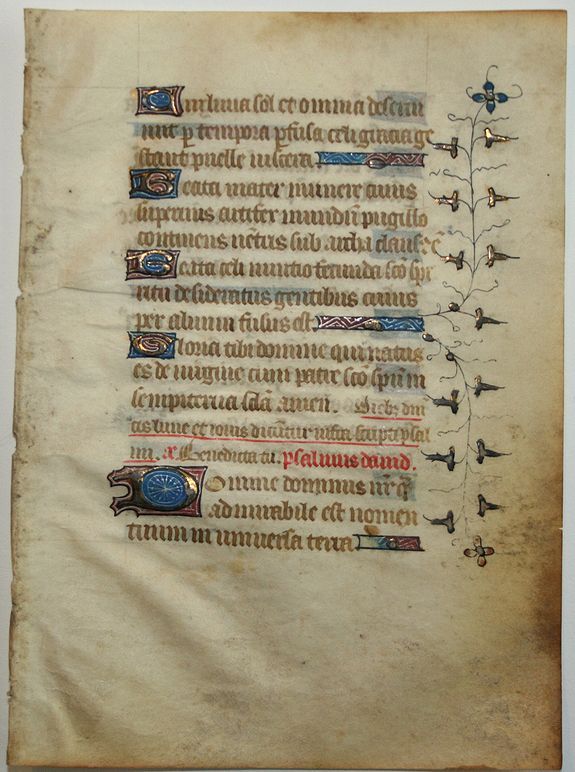 Cui luna sol et omnia deserui
unt p tempora pfusa celi gratia ge
stant puelle uiscera.
Beata mater munere cuius
supernus artifex mundū pugillo
continens uētris sub archa clausꝰ ē
Beata celi nuntio fecunda scō spi
ritu desideratus gentibus cuius
per aluum fusus est
Gloria tibi domine qui natus
es de uirgine cum patre scō spū in
sempiterna sclā amen. Diebꝫ dni
cis lune et iouis dicūtur infra scripti psal
mi. a Benedicta tu. psalmus dauid.
Domine dominus nr̄ q̄
admirabile est nomen
tuum in uniuersa terra